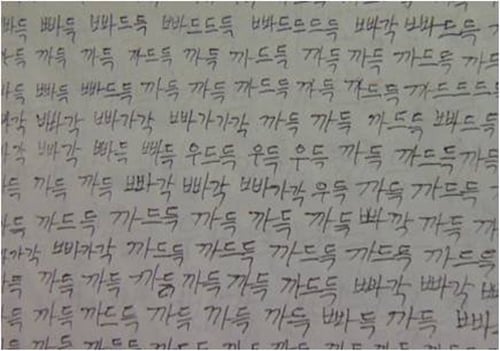 빠득 빠드득 빠드드득 빠드드드득 빠각 빠드득
까득 까득 까드득 까득 까드득 까득 까득 까드득
빠득 빠드득 까득 까득 까드득 까득 까드득 까드드드득
빠각 빠가각 빠가가각 까득 까득 까드득 빠드득
빠각 빠득 빠득 우드득 우득 우득 까득 까드득 까득
까득 까득 빠각 빠각 빠가각 우득 까득 까드득
까드득 까드득 까득 까득 까득 빠각 까득
빠가각 까드득 까득 까드득 까드득 까드득
까득 까득 까득 까득 까득 까드득 빠각 빠각
까득 까드득 까득 까득 빠득 까득